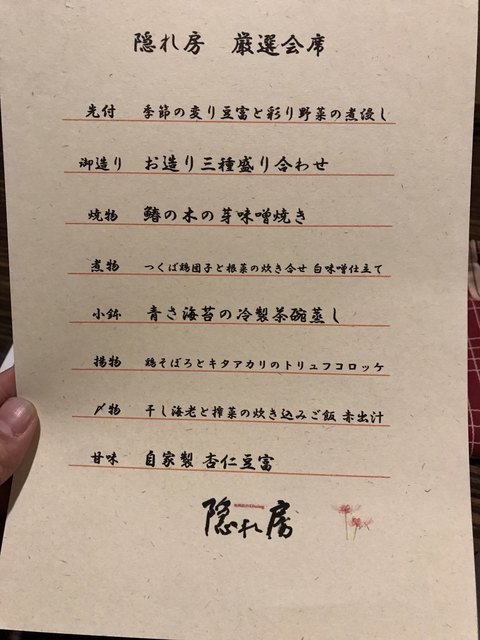 隠れ房 厳選会席
先付 季節の変り豆富と彩り野菜の煮浸し
御造り お造り三種盛り合わせ
焼物 鰆の木の芽味噌焼き
煮物 つくば鶏団子と根菜の炊き合せ 白味噌仕立て
小鉢 青さ海苔の冷製茶碗蒸し
揚物 鶏そぼろとキタアカリのトリュフコロッケ
〆物 干し海老と搾菜の炊き込みご飯 赤出汁
甘味 自家製 杏仁豆富
隠れ房